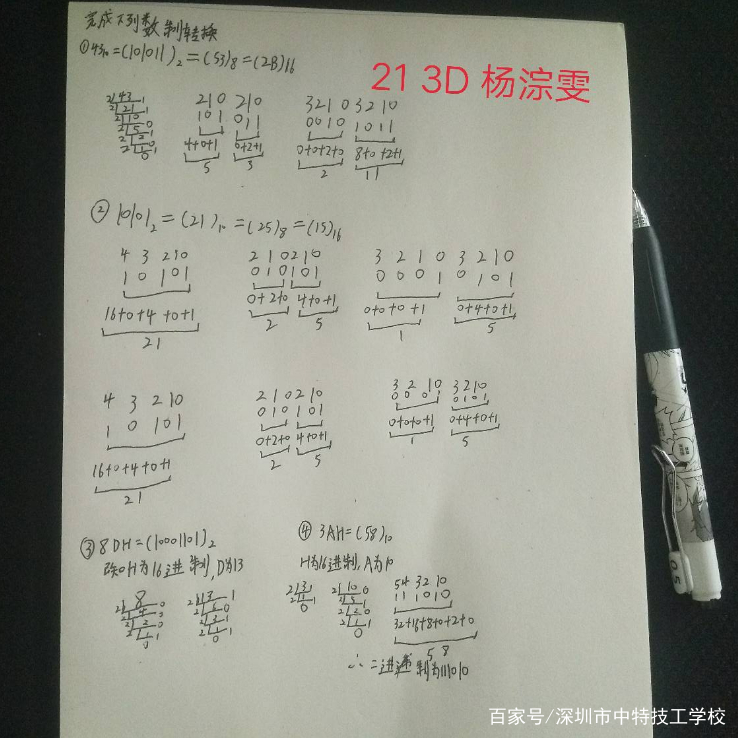 完成下列数制转换
①43₁₀=(101011)₂=(53)₈=(2B)₁₆
21 3D 杨淙雯
2 43 1
2 21 1
2 10 0
2 5 1
2 2 0
2 1 1
0
210 210
101 011
4+0+1 0+2+1
5 3
3210 3210
0010 1011
0+0+2+0 8+0+2+1
2 11
②10101₂=(21)₁₀=(25)₈=(15)₁₆
4 3 2 1 0
1 0 1 0 1
16+0+4+0+1
21
210 210
010 101
0+2+0 4+0+1
2 5
3 2 1 0 3 2 1 0
0 0 0 1 0 1 0 1
0+0+0+1 0+4+0+1
1 5
4 3 2 1 0
1 0 1 0 1
16+0+4+0+1
21
210 210
010 101
0+2+0 4+0+1
2 5
3 2 1 0 3210
0 0 0 1 0101
0+0+0+1 0+4+0+1
1 5
③8DH=(10001101)₂
H为16进制,D为13
2 8 0
2 4 0
2 2 0
2 1 1
0
2 13 1
2 6 0
2 3 1
2 1 1
0
④3AH=(58)₁₀
H为16进制,A为10
2 3 1
2 1 1
0
2 10 0
2 5 1
2 2 0
2 1 1
0
54 3210
11 1010
32+16+8+0+2+0
58
∴二进制为111010
0.5
百家号/深圳市中特技工学校